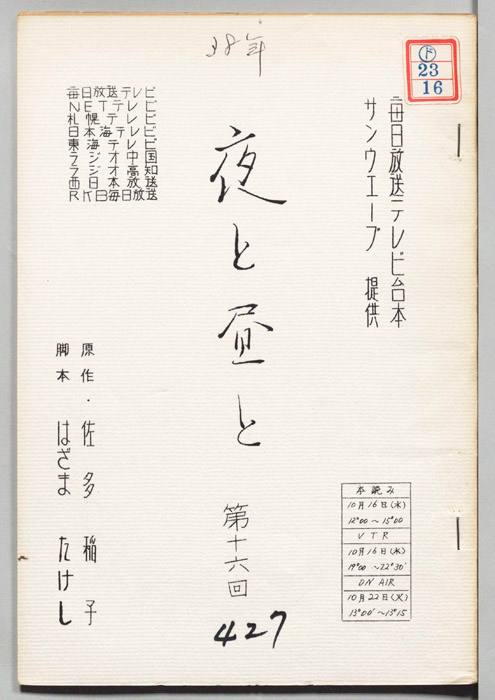 38年
㋣
23
16
毎日放送テレビ台本
サンウエーブ 提供
毎日放送テレビ
NETテレビ
札幌テレビ
日本テレビ
東海テレビ
ラジオ中国
ラジオ高知
西日本放送
RKB毎日放送
夜と昼と
第十六回
427
原作・佐多稲子
脚本 はざま たけし
本読み
10月16日(水)
12°00～15°00
VTR
10月16日(水)
19°00～22°30'
ON AIR
10月22日(火)
13°00'～13°15